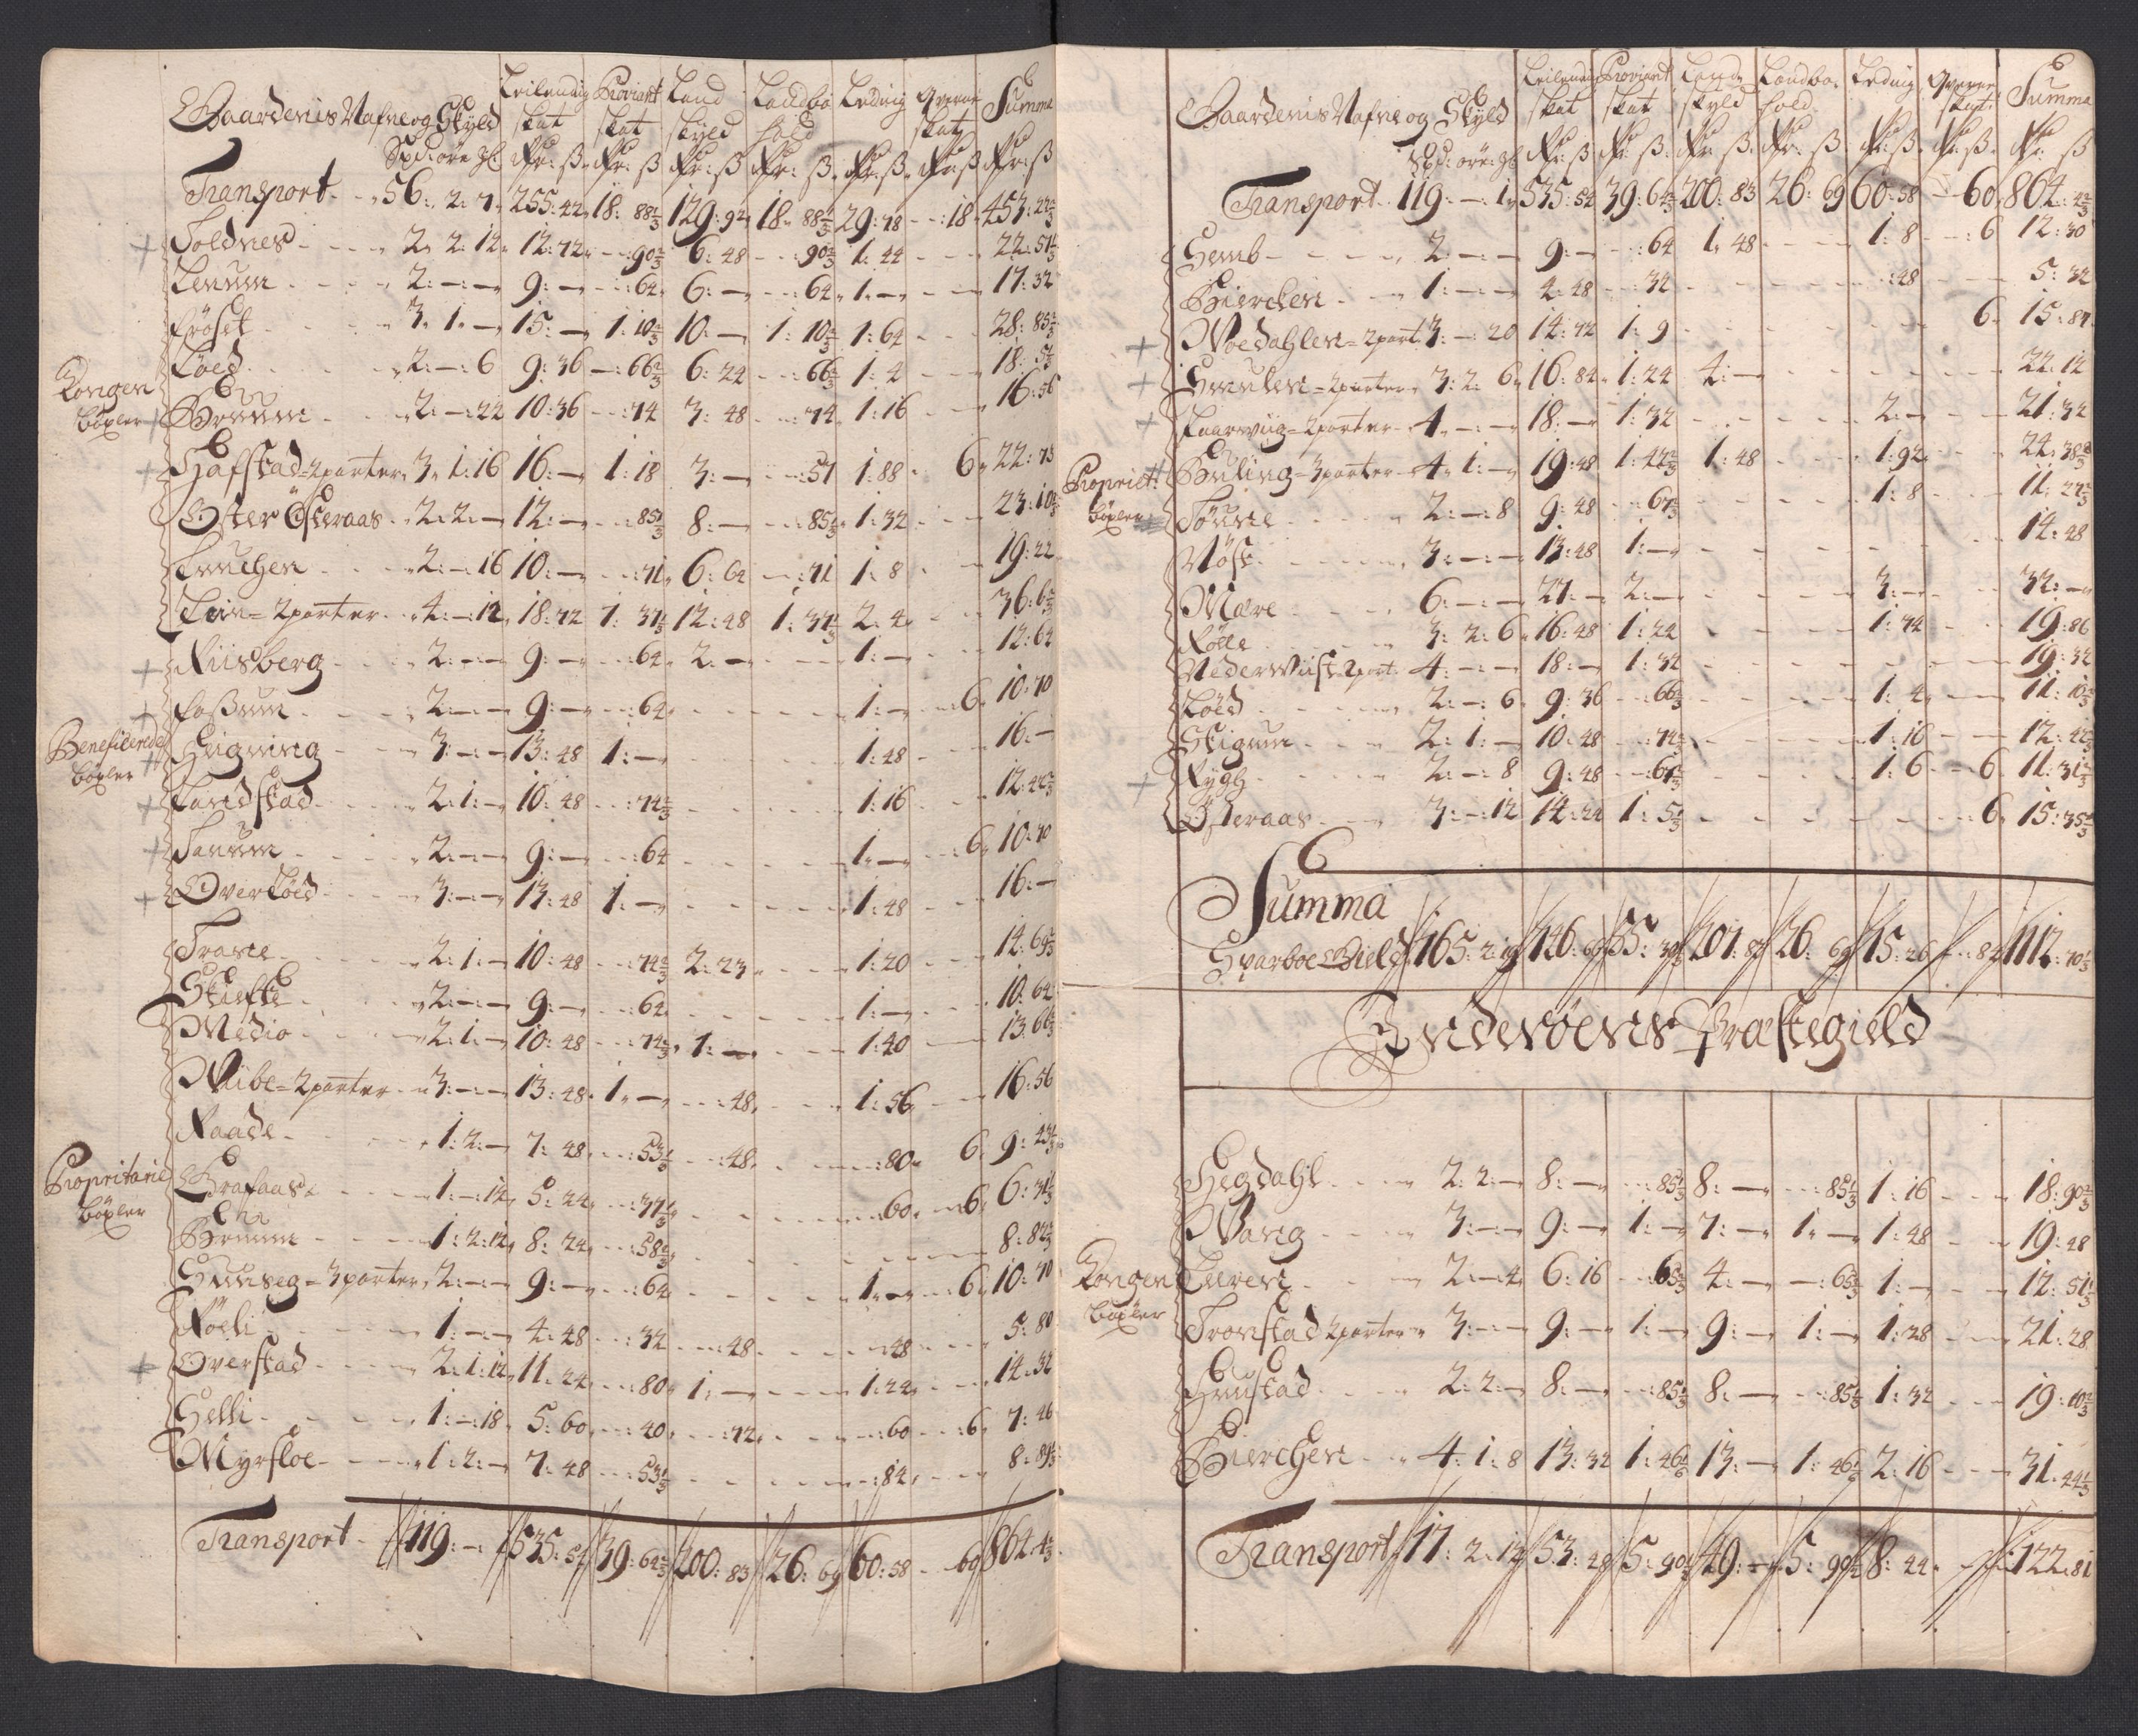 Gaardenis Nafne og Skyld Leilending skat Proviant skat Land skyld Landbo hold Leding Qværne skat Summa
Spd: øre: gl: Rdr: ß Rdr: ß Rdr: ß Rdr: ß Rdr: ß Rdr ß Rdr: ß
Transport 56: 2: 7 255: 42 18: 88 1/3 129: 92 18: 88 1/3 29: 78 - 18 453: 22 2/3
Foldnes 2: 2: 12 12: 72 90 2/3 6: 48 90 2/3 1: 44 22: 51 1/3
Lenum 2: - 9: - 64 6: - 64 1: - 17: 32
Frøset 3: 1: - 15: - 1: 10 2/3 10: - 1: 10 2/3 1: 64 28: 85 1/3
Løed 2: -: 6 9: 36 66 2/3 6: 24 66 2/3 1: 4 18: 5 1/3
Kongen bøxler
Bomum 2: -: 22 10: 36 74 3: 48 74 1: 16 16: 56
Hafstad = 2 parter 3: 1: 16 16: - 1: 18 3: - 57 1: 88 6 22: 73
Øster Østeraas 2: 2: - 12: - 85 1/3 8: - 85 1/3 1: 32 23: 10 2/3
Tinchen 2: -: 16 10: - 71 6: 64 71 1: 8 19: 22
Lein = 2 parter 4: -: 12 18: 72 1: 37 1/3 12: 48 1: 37 1/3 2: 4 36: 6 2/3
Riisberg 2: - 9: - 64 2: - 1: - 12: 64
Fossum 2: - 9: - 64 1: - 6 10: 70
Beneficerede bøxler
Higning 3: - 13: 48 1: - 1: 48 16: -
Landstad 2: 1: - 10: 48 74 2/3 1: 16 12: 42 2/3
Tanum 2: - 9: - 64 1: - 6 10: 70
Overløed 3: - 13: 48 1: - 1: 48 16: -
Trane 2: 1: - 10: 48 74 2/3 2: 23 1: 20 14: 69 2/3
Skiefte 2: - 9: - 64 1: - 10: 64
Medio 2: 1: - 10: 48 74 2/3 1: - 1: 40 13: 66 2/3
Wibe = 2 parter 3: - 13: 48 1: - 48 1: 56 16: 56
Raade 1: 2: - 7: 48 53 1/3 48 80 6 9: 43 1/3
Propritarie bøxler
Grafaas 1: -: 12 5: 24 37 1/3 60 6 6: 31 1/3
Bomum 1: 2: 12 8: 24 58 2/3 8: 82 2/3
Hunseg = 3 parter 2: - 9: - 64 1: - 6 10: 70
Røeli 1: - 4: 48 32 48 48 5: 80
Overstad 2: 1: 12 11: 24 80 1: - 1: 24 14: 32
Helli 1: -: 18 5: 60 40 72 60 6 7: 46
Myrsloe 1: 2: - 7: 48 53 1/3 84 8: 89 1/3
Transport 119: - 1 535: 54 39: 64 2/3 200: 83 26: 69 60: 58 - 60 864: 4 2/3
Gaardenis Nafne og Skyld Leilending skat Proviant skat Lands skyld Landbo hold Leding Qværne skat Summa
Spd: øre: gl Rdr: ß Rdr: ß Rdr: ß Rdr: ß Rdr: ß Rdr: ß Rdr: ß
Transport 119: - 1 535: 54 39: 64 2/3 200: 83 26: 69 60: 58 - 60 864: 4 2/3
Hemb 2: - 9: - 64 1: 48 1: 8 6 12: 30
Bierchen 1: - 4: 48 34 48 5: 32
Woedahlen = 2 part 3: -: 20 14: 72 1: 9 6 15: 87
Smulen = 2 parter 3: 2: 6 16: 84 1: 24 4: - 22: 12
Kaarwiig = 2 parter 4: - 18: - 1: 32 2: - 21: 32
Propriet: bøxler
Huling = 3 parter 4: 1: - 19: 48 1: 42 2/3 1: 48 1: 92 24: 38 2/3
Tønne 2: -: 8 9: 48 67 2/3 1: 8 11: 27 2/3
Møst 3: - 13: 48 1: - 14: 48
Mære 6: - 27: - 2: - 3: - 32: -
Rølle 3: 2: 6 16: 48 1: 24 1: 74 19: 86
Nederwiist 2 part 4: - 18: - 1: 32 19: 32
Løed 2: -: 6 9: 36 66 2/3 1: 4 11: 10 2/3
Stigum 2: 1: - 10: 48 74 2/3 1: 16 12: 42 2/3
Rygh 2: -: 8 9: 48 67 2/3 1: 6 6 11: 31 2/3
Østeraas 3: -: 12 14: 24 1: 5 1/3 6 15: 35 1/3
Summa
Sparboe Gield 165: 2: 19 746: 69 55: 39 2/3 201: 83 26: 69 75: 26 - 84 1112: 70 1/3
Inderøens Præstegield
Hegdahl 2: 2: - 8: - 85 1/3 8: - 85 1/3 1: 16 18: 90 2/3
Wang 3: - 9: - 1: - 7: - 1: - 1: 48 19: 48
Kongen bøxler
Luren 2: -: 4 6: 16 65 2/3 4: - 65 2/3 1: - 12: 51 1/3
Tronstad 2 parter 3: - 9: - 1: - 9: - 1: - 1: 28 21: 28
Hunstad 2: 2: - 8: - 85 1/3 8: - 85 1/3 1: 32 19: 10 2/3
Bierchen 4: 1: 8 13: 32 1: 46 1/6 13: - 1: 46 1/6 2: 16 31: 44 1/3
Transport 17: 2: 12 53: 48 5: 90 1/2 49: - 5: 90 1/2 8: 44 122: 81